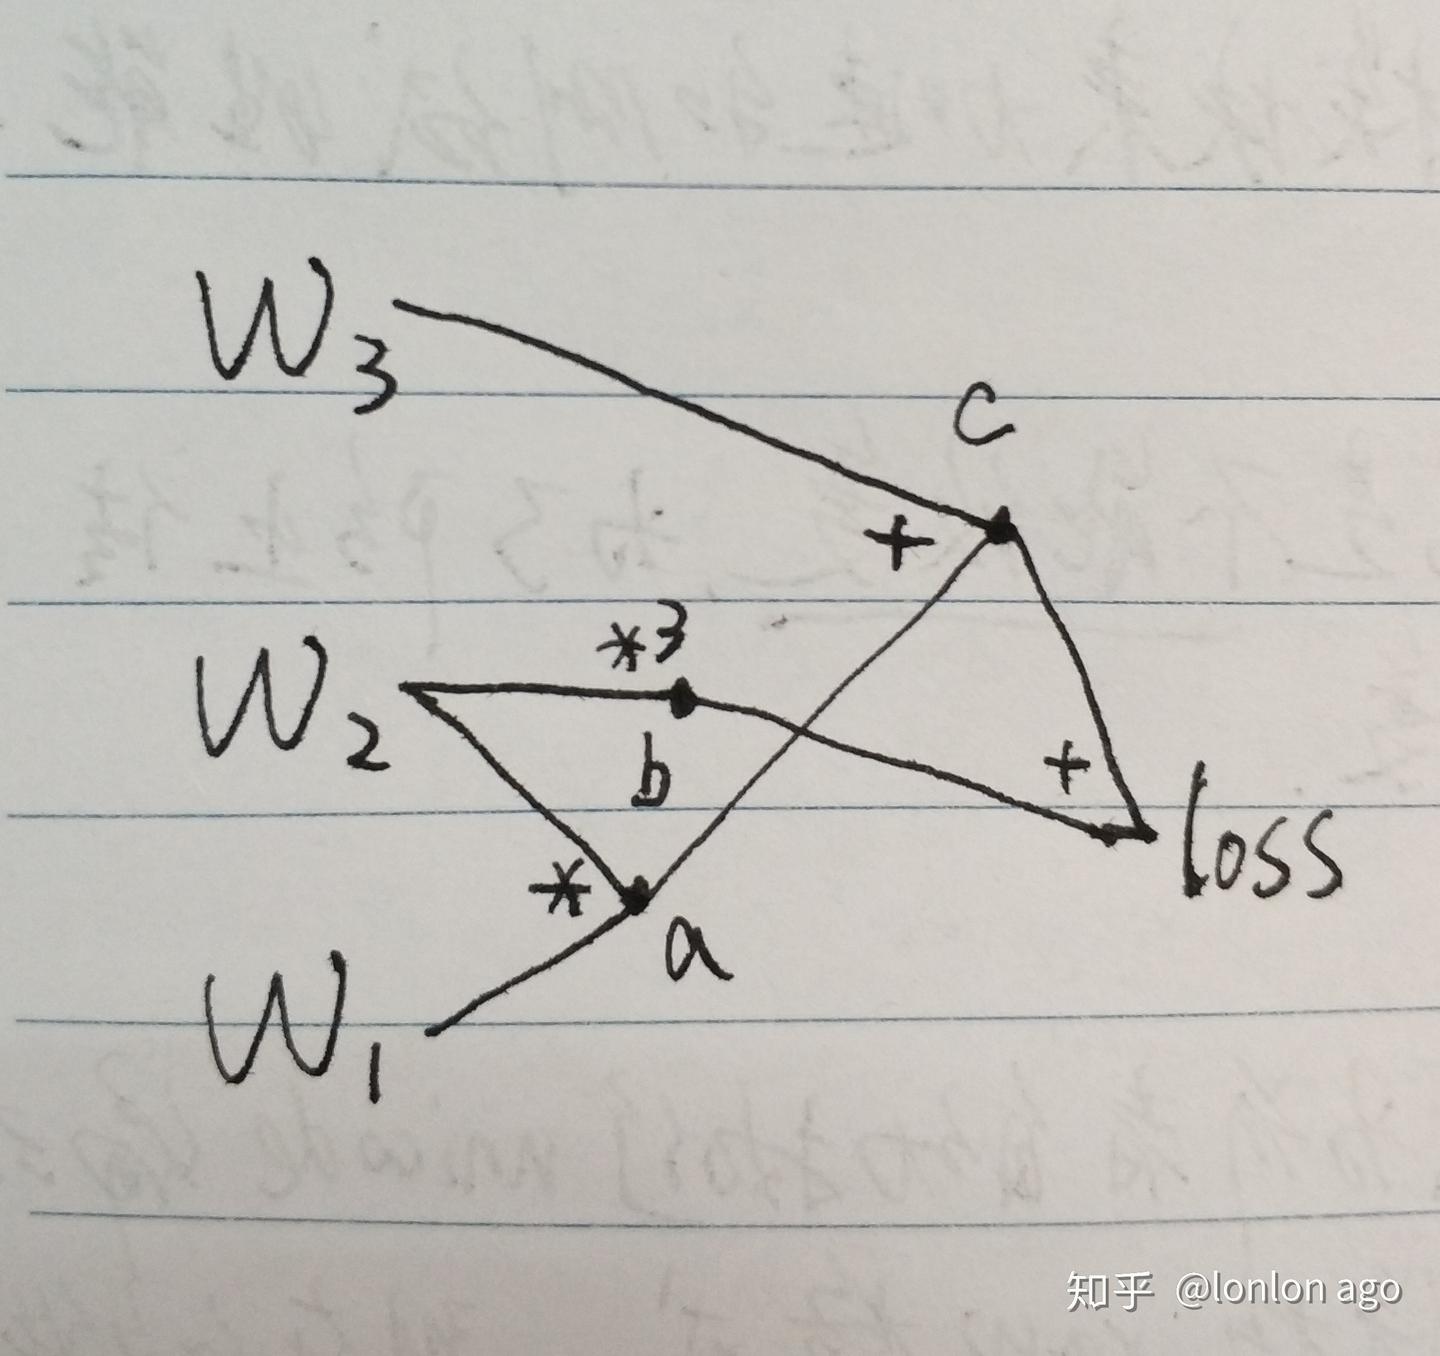 W3
c
+
*3
W2
b
+
loss
*
a
W1
知乎 @lonlon ago